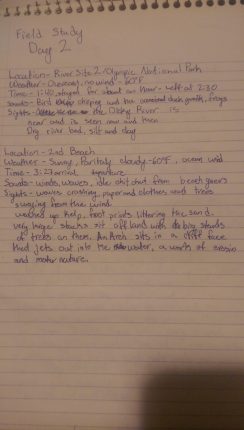 Field Study
Day 2
Location- River Site 2- Olympic National Park
Weather- Overcast, no wind 60°F
Time- 1:40, stayed for about an hour - left at 2:30
Sounds- Bird chirping and the occasional duck, frogs
Sights- the Dicky River is
near and is seen now and then
Dry river bed, silt and clay
Location- 2nd Beach
Weather- Sunny, Partially cloudy ~60°F, ocean wind
Time- 3:27 arrival
Sounds- winds, waves, idle chit chat from beach goers
Sights- waves crashing, paper and clothes and trees
swaying from the wind.
washed up kelp, foot prints littering the sand.
very large stacks sit off land with big stands
of trees on them. An Arch sits in a cliff face
that jets out into the water, a work of erosion
and mother nature.